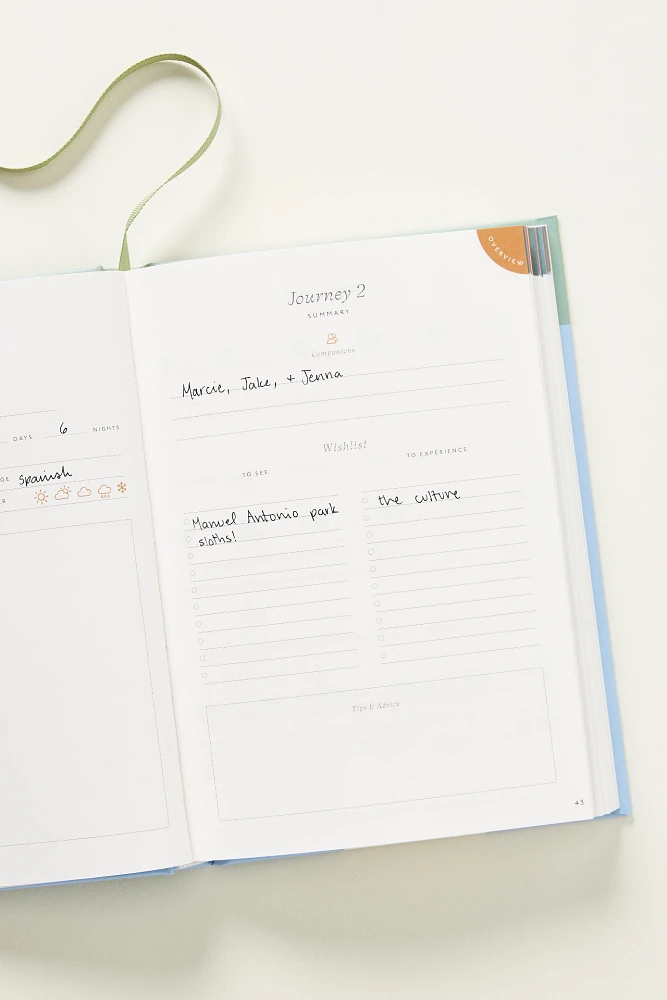 DAYS 6 NIGHTS
GE Spanish
ER
OVERVIEW
Journey 2
SUMMARY
Companions
Marcie, Jake, + Jenna
Wishlist
TO SEE
TO EXPERIENCE
Manuel Antonio park
sloths!
the culture
Tips & Advice
43